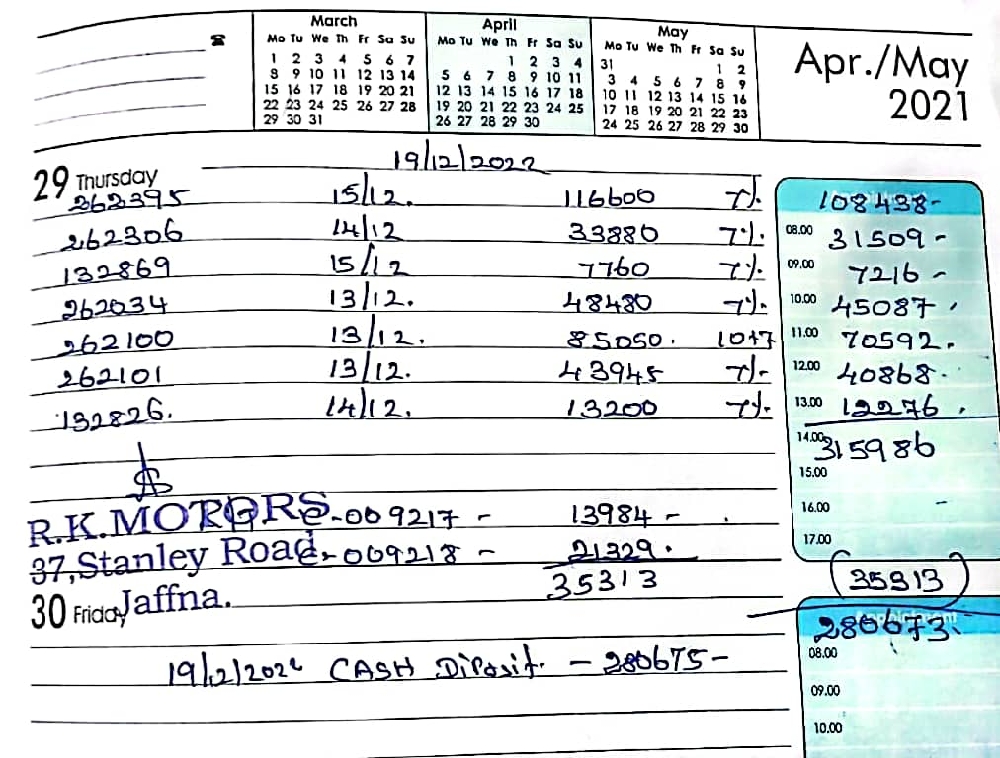 March
Mo Tu We Th Fr Sa Su
1 2 3 4 5 6 7
8 9 10 11 12 13 14
15 16 17 18 19 20 21
22 23 24 25 26 27 28
29 30 31
April
Mo Tu We Th Fr Sa Su
1 2 3 4
5 6 7 8 9 10 11
12 13 14 15 16 17 18
19 20 21 22 23 24 25
26 27 28 29 30
May
Mo Tu We Th Fr Sa Su
31 1 2
3 4 5 6 7 8 9
10 11 12 13 14 15 16
17 18 19 20 21 22 23
24 25 26 27 28 29 30
Apr./May
2021
19/12/2022
29 Thursday
262395 15/12. 116600 7%. 108438-
262306 14/12 33880 7%. 08.00 31509-
132869 15/12 7760 7%. 09.00 7216-
262034 13/12. 48480 7%. 10.00 45087.
262100 13/12. 85050. 10+7 11.00 70592.
262101 13/12. 43945 7%. 12.00 40868.
132826. 14/12. 13200 7%. 13.00 12276.
14.00 315986
15.00
R.K.MOTORS 009217 - 13984 - 16.00 -
37,Stanley Road 009218 - 21329. 17.00
Jaffna. 35313 (35313)
30 Friday
280673.
08.00
19/12/2022 CASH Diposit. - 280675-
09.00
10.00